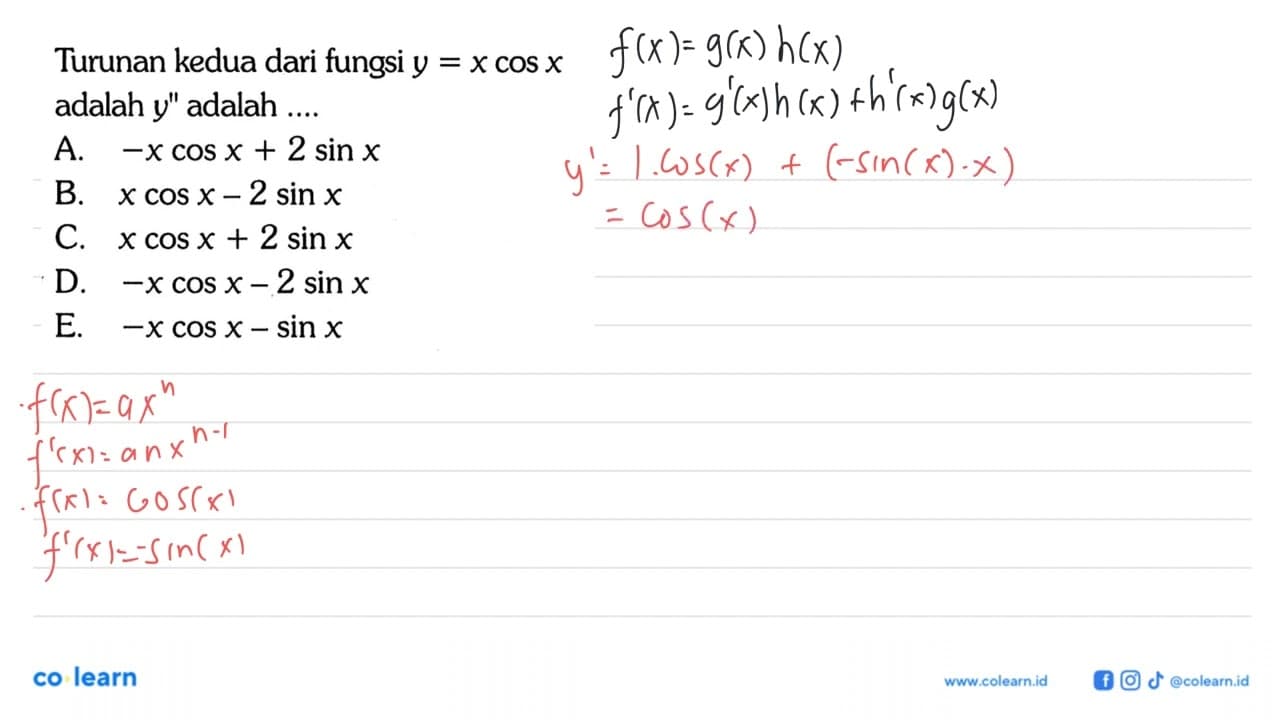 Turunan kedua dari fungsi y = x cos x
adalah y" adalah ....
A. −x cos x + 2 sin x
B. x cos x − 2 sin x
C. x cos x + 2 sin x
D. −x cos x − 2 sin x
E. −x cos x − sin x
f(x)= g(x) h(x)
f'(x)= g'(x)h(x) + h'(x)g(x)
y'= 1.cos(x) + (-sin(x).x)
= cos(x)
.f(x)= ax^n
f'(x)= anx^{n-1}
.f(x)= cos(x)
f'(x)=-sin(x)
co·learn
www.colearn.id
@colearn.id